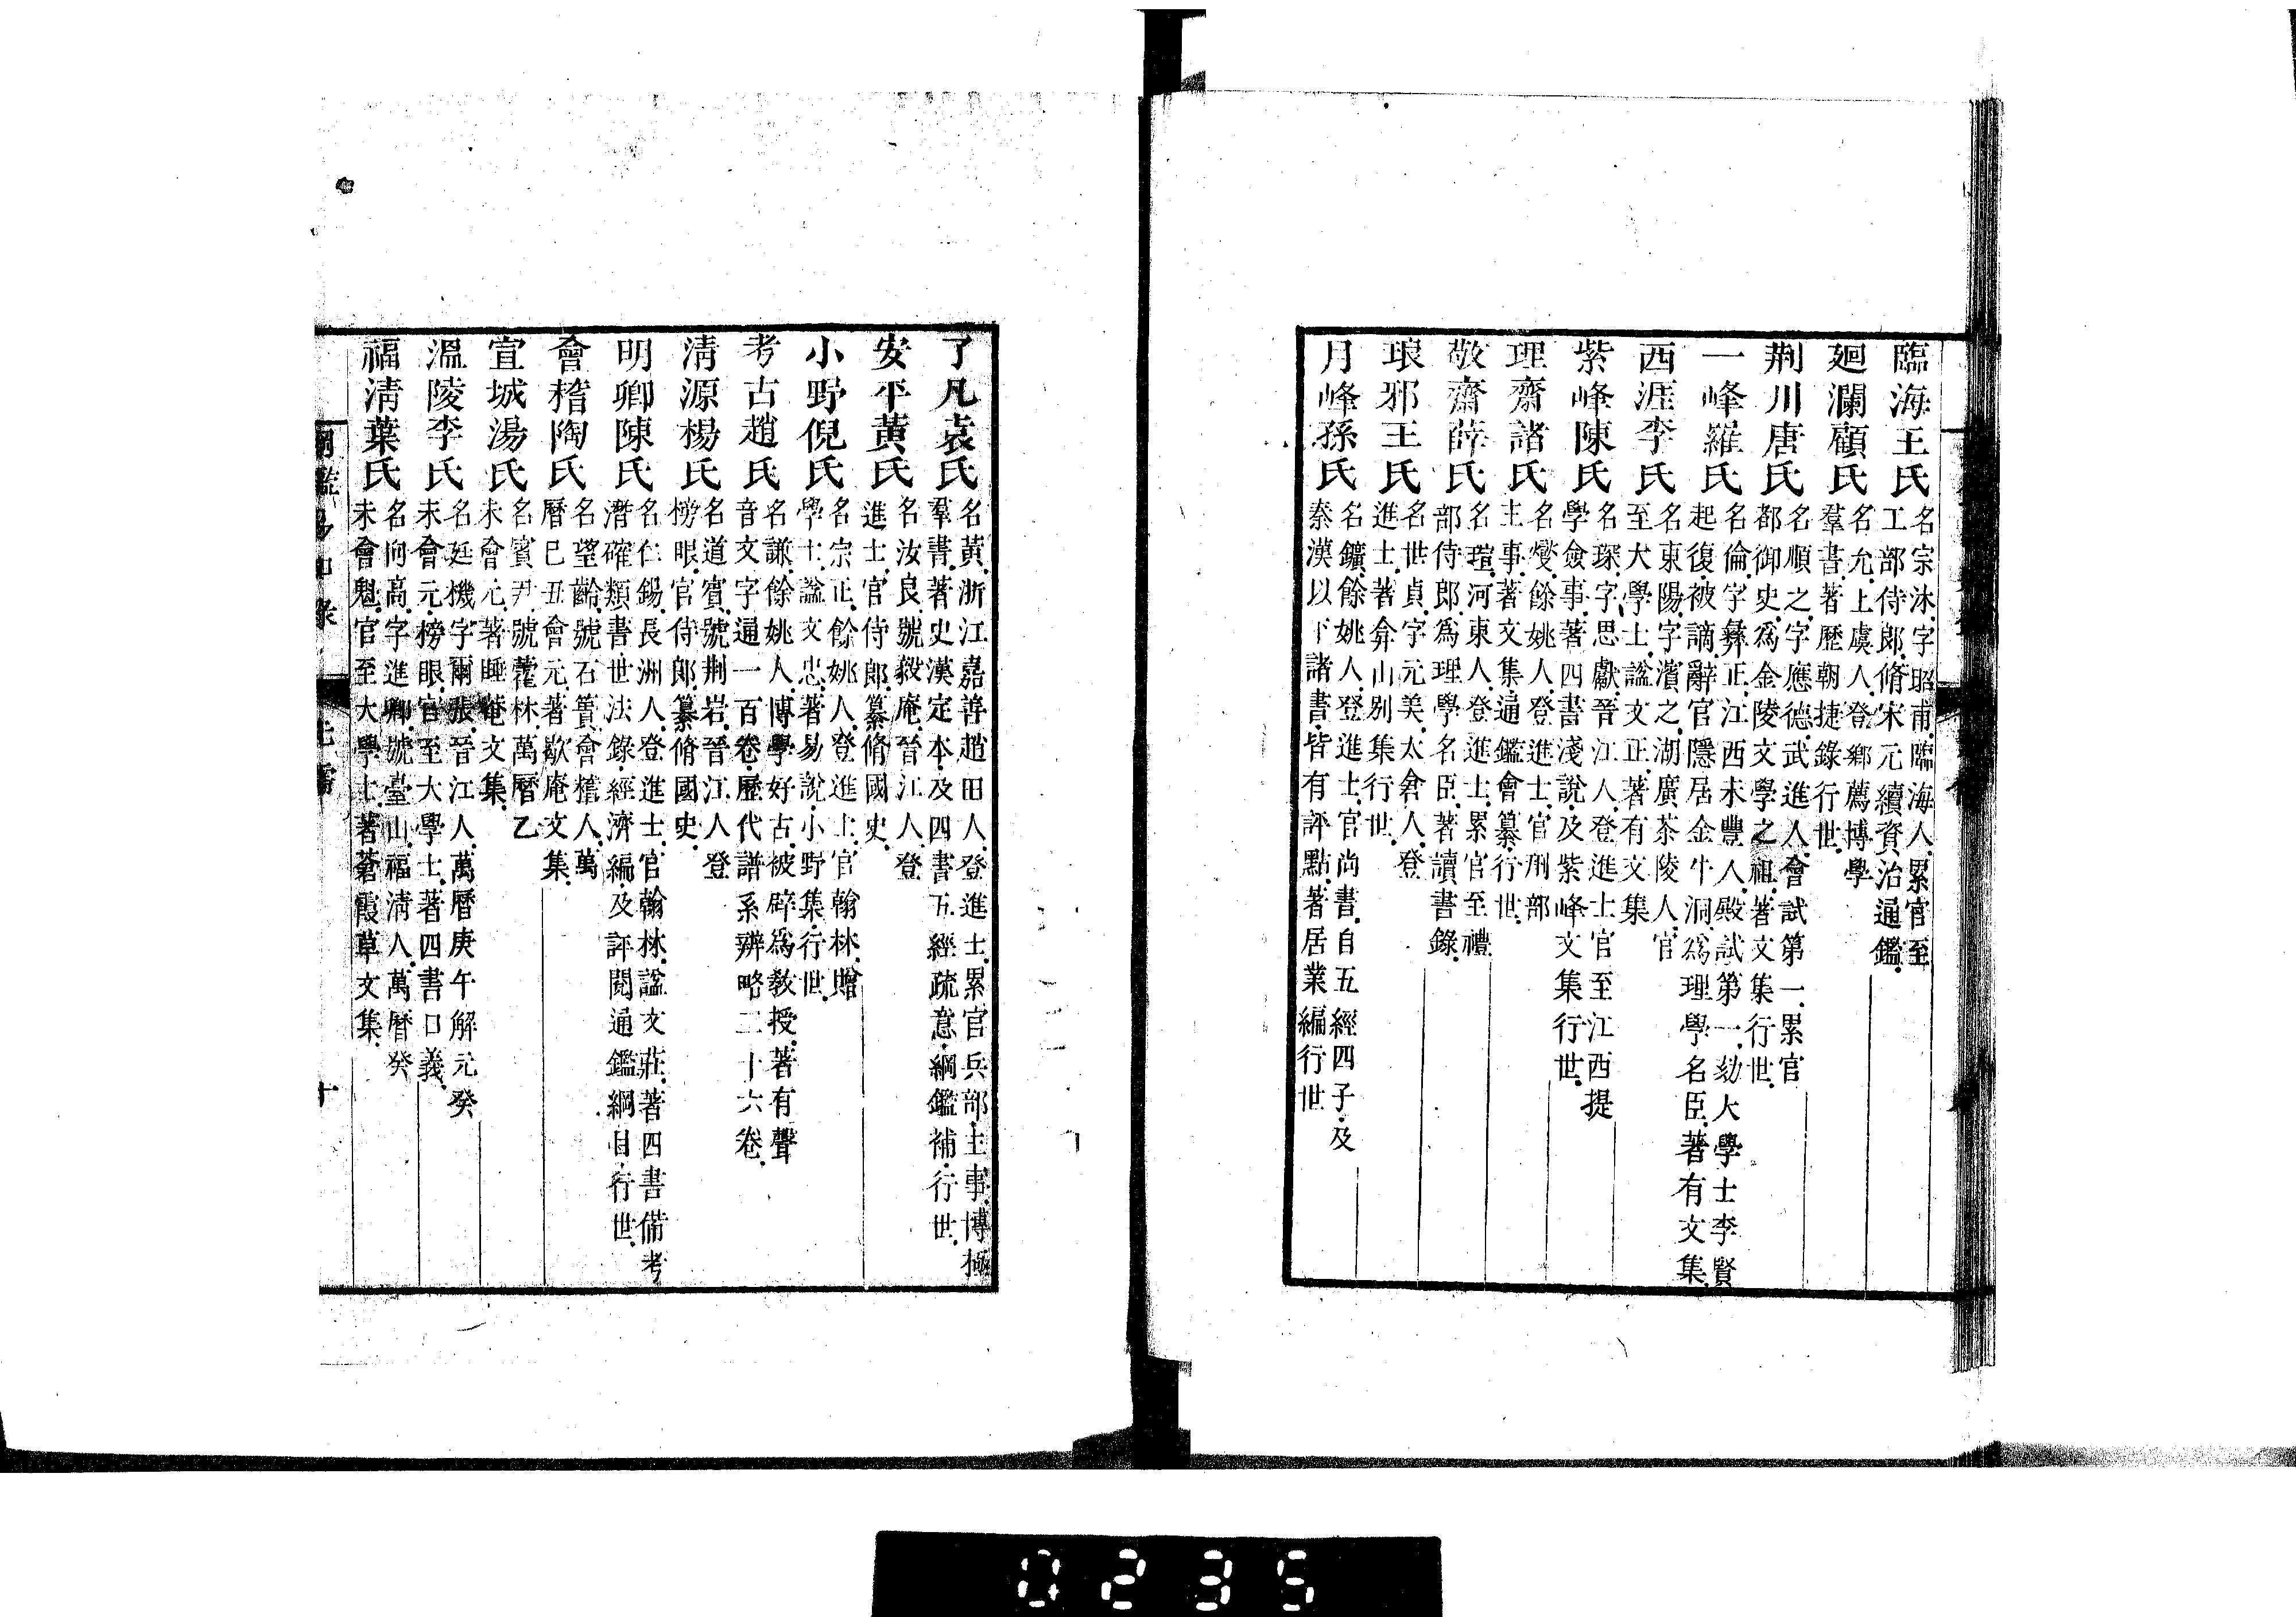 臨海王氏
名宗沐字昭甫臨海人累官至
工部侍郎脩宋元續資治通鑑
廻瀾顧氏
名允上虞人登鄉薦博學
羣書著歷朝捷錄行世
荆川唐氏
名順之字應德武進人會試第一累官
都御史爲金陵文學之祖著文集行世
一峰羅氏
名倫字彝正江西末豐人殿試第一劾大學士李賢
起復被謫辭官隱居金牛洞爲理學名臣著有文集
西涯李氏
名東陽字濱之湖廣茶陵人官
至大學士諡文正著有文集
紫峰陳氏
名琛字思獻晉江人登進士官至江西提
學僉事著四書淺說及紫峰文集行世
理齋諸氏
名燮餘姚人登進士官刑部
主事著文集通鑑會纂行世
敬齋薛氏
名瑄河東人登進士累官至禮
部侍郎爲理學名臣著讀書錄
琅邪王氏
名世貞字元美太倉人登
進士著弇山别集行世
月峰孫氏
名鑛餘姚人登進士官尚書自五經四子及
秦漢以下諸書皆有評點著居業編行世
了凡袁氏
名黃浙江嘉善趙田人登進士累官兵部主事博極
羣書著史漢定本及四書五經疏意綱鑑補行世
安平黃氏
名汝良號毅庵晉江人登
進士官侍郎纂脩國史
小野倪氏
名宗正餘姚人登進士官翰林贈
學士諡文忠著易說小野集行世
考古趙氏
名謙餘姚人博學好古被辟爲敎授著有聲
音文字通一百卷歷代譜系辨略二十六卷
清源楊氏
名道賓號荆岩晉江人登
榜眼官侍郎纂脩國史
明卿陳氏
名仁錫長洲人登進士官翰林諡文莊著四書備考
潛確類書世法錄經濟編及評閱通鑑綱目行世
會稽陶氏
名望齡號石簣會稽人萬
曆巳丑會元著歇庵文集
宣城湯氏
名賓尹號藿林萬曆乙
未會元著睡菴文集
溫陵李氏
名廷機字爾張晉江人萬曆庚午解元癸
未會元榜眼官至大學士著四書口義
福清葉氏
名向高字進卿號臺山福清人萬曆癸
未會魁官至大學士著蒼霞草文集
十
0235